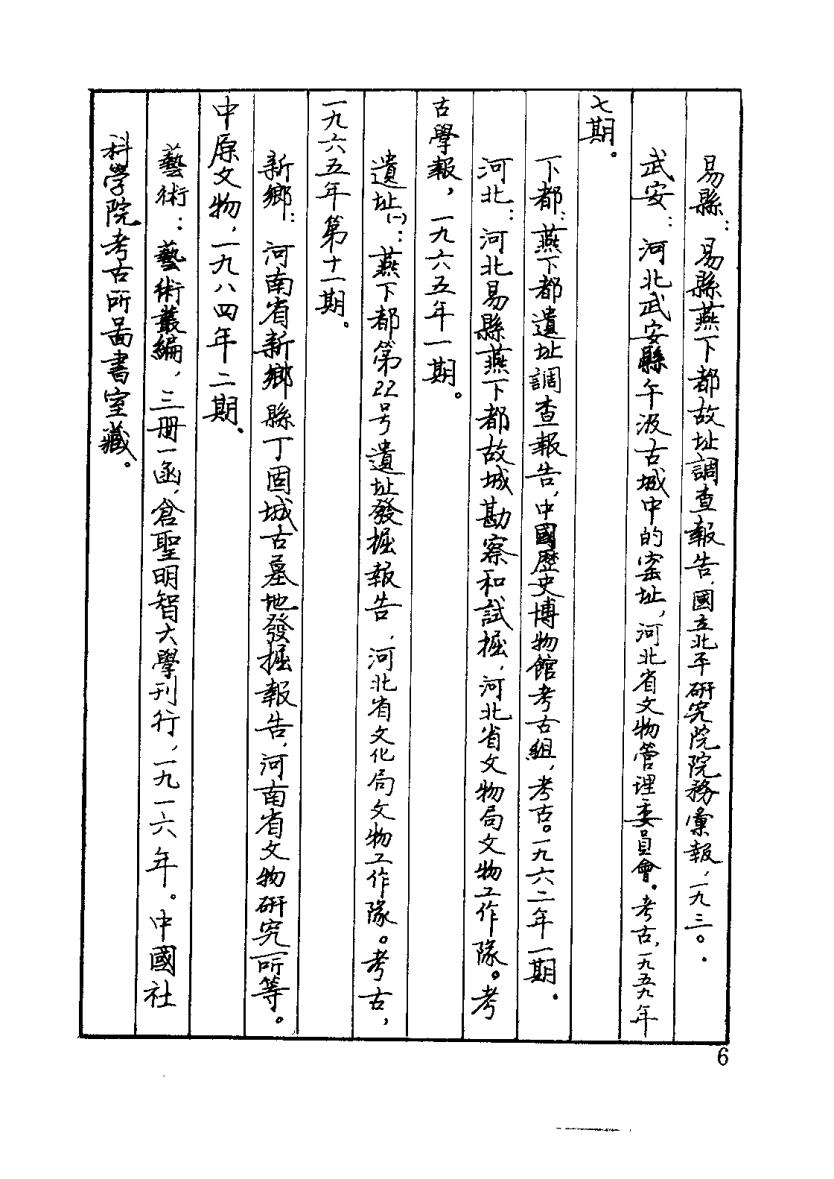 易縣：易縣燕下都故址調查報告，國立北平研究院院務彙報，一九三〇．
武安：河北武安縣午汲古城中的窰址，河北省文物管理委員會。考古，一九五九年
七期。
下都：燕下都遺址調查報告，中國歷史博物館考古組，考古。一九六二年一期．
河北：河北易縣燕下都故城勘察和試掘，河北省文物局文物工作隊。考
古學報，一九六五年一期。
遺址㈠：燕下都第22号遺址發掘報告，河北省文化局文物工作隊。考古，
一九六五年第十一期．
新鄉：河南省新鄉縣丁固城古墓地發掘報告，河南省文物研究所等。
中原文物，一九八四年二期．
藝術：藝術叢編，三冊一函，倉聖明智大學刊行，一九一六年。中國社
科学院考古所啚書室藏。
6